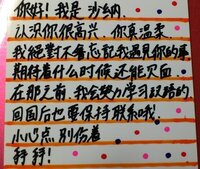 你好！我是沙纳.
认识你很高兴. 你真温柔
我绝對不会忘记我遇見你的事
期待着什么时候还能见面.
在那之前,我会努力学习汉语的
回国后也要保持联系哦!
小心点 别伤着
拜拜!